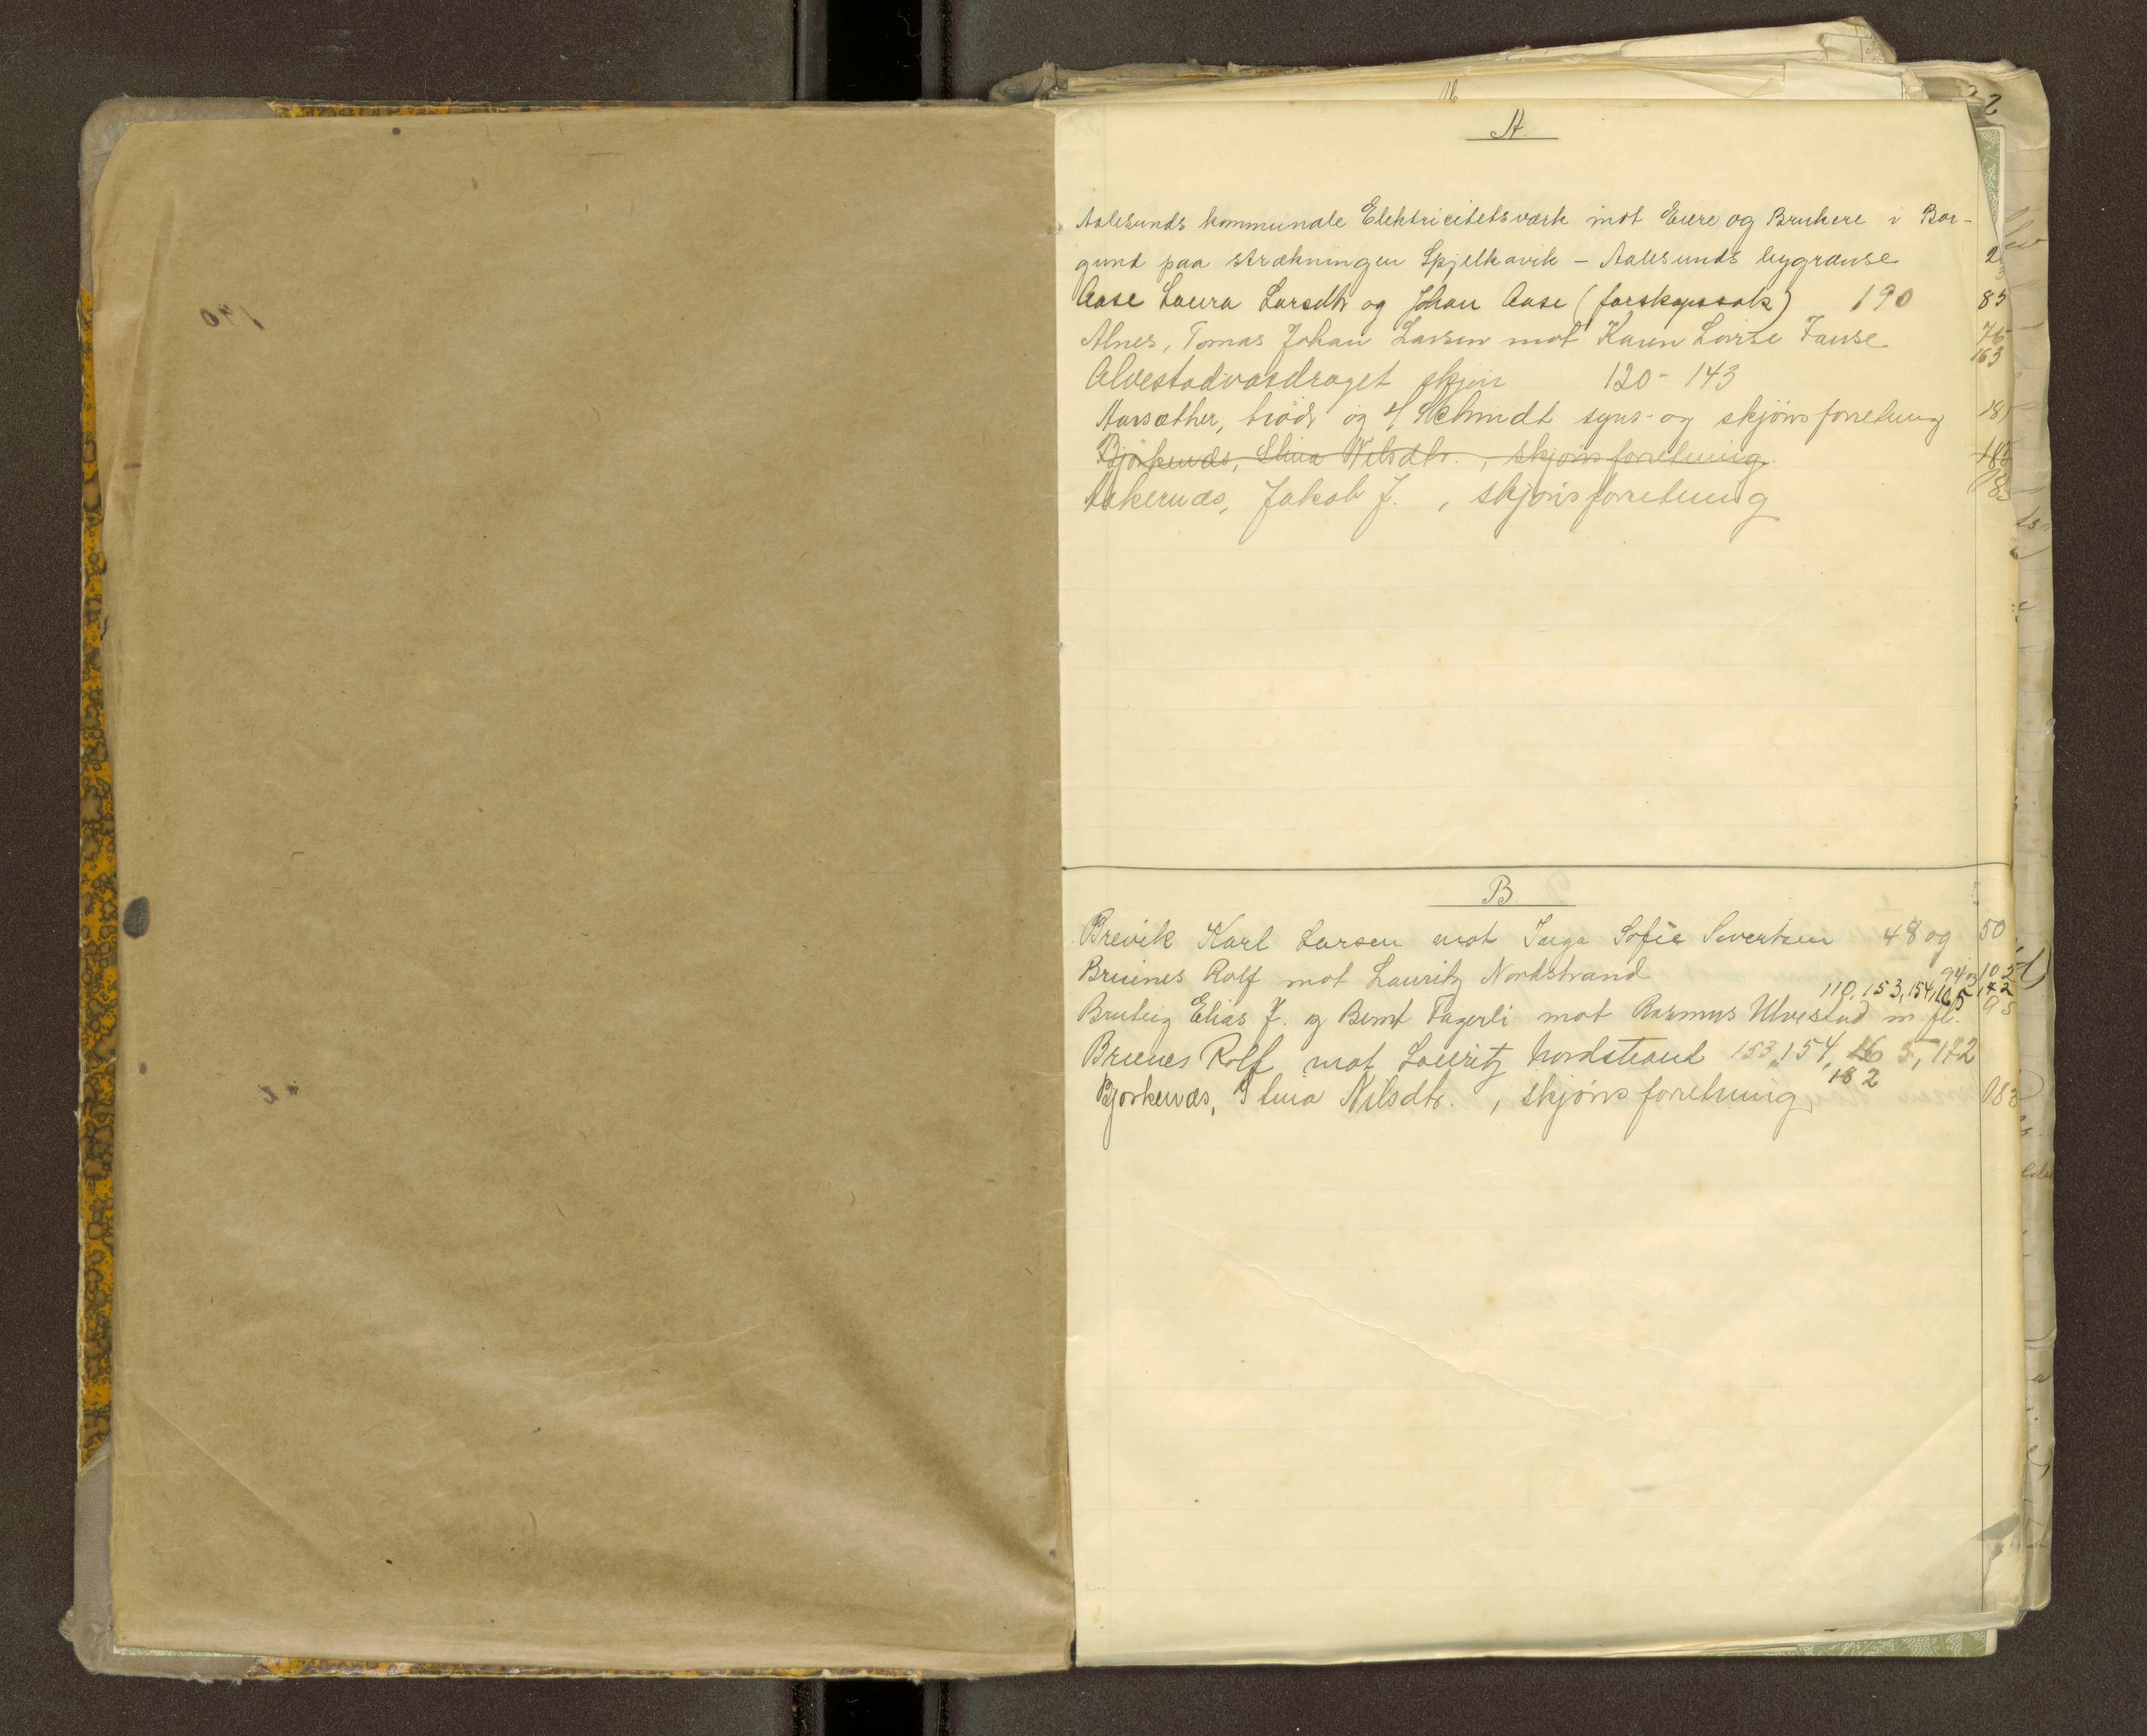 A.
Aalesunds kommunale Elektricitetsværk mot Eiere og Brukere i Bor-
gund paa strækningen Spjelkavik - Aalesunds bygrænse 2
Aase Laura Larsdtr og Johan Aase (farskapssak) 190 85
Alnes, Tomas Johan Larsen mot Karen Lovise Fause 76
163
Alvestadvasdraget skjøn 120 - 143
Aarsæther, brødr og Schmidt syns- og skjønsforretning 181
Bjørkenæs, Elina Nilsdtr. , skjønsforretning
Aakernæs, Jakob J. , skjønsforretning
B.
Brevik Karl Larsen mot Inga Sofie Sivertsen 48 og 50
Bruines Rolf mot Lauritz Nordstrand 94 og 102
110, 153, 154, 165, 172
Bruteig Elias J. og Bernt Fagerli mot Rasmus Ulvestad m fl. 98
Bruines Rolf mot Lauritz Nordstrand 153, 154, 165, 172
182
Bjørkenæs, Elina Nilsdtr. , skjønsforretning 183